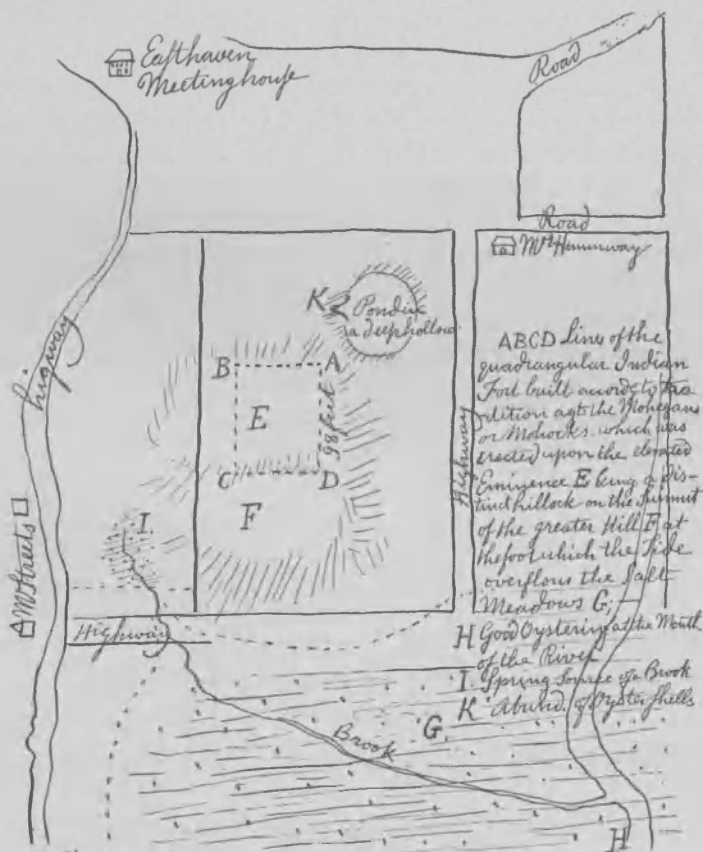 Easthaven
Meetinghouse
Road
Road
Mr Hemmway
higway
K
Pond in
a deep hollow
B
A
E
98 feet
C
D
F
I
Highway
Mr Streets
Highway
ABCD Lines of the
quadrangular Indian
Fort built accordg to Tra
dition agt the Mohegans
or Mohocks. which was
erected upon the elevated
Eminence E being a dis-
tinct hillock on the Summit
of the greater Hill F at
the foot which the Tide
overflows the Salt
Meadows G;
H Good Oystering at the Mouth
of the River
I. Spring Source of a Brook
K Abund. of Oyster Shells
Brook
G.
H